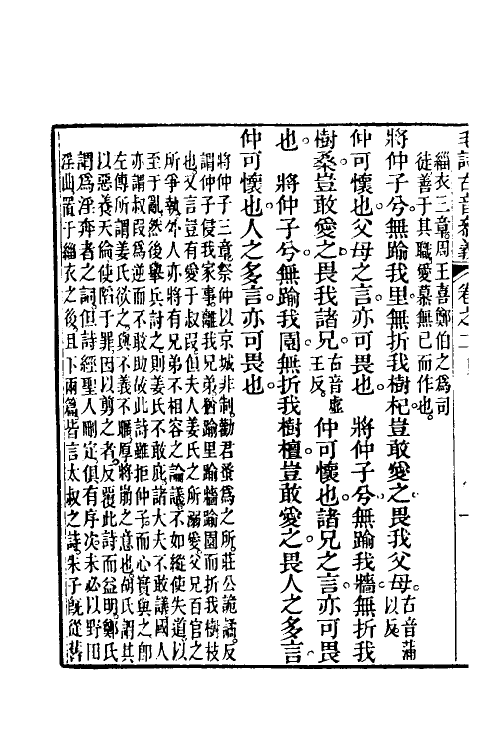 毛詩古音參義 卷之二
緇衣三章周王喜鄭伯之為司
徒善于其職愛慕無已而作也
將仲子兮無踰我里無折我樹杞豈敢愛之畏我父母古音蒲以反
仲可懷也父母之言亦可畏也 將仲子兮無踰我牆無折我
樹桑豈敢愛之畏我諸兄古音虛王反仲可懷也諸兄之言亦可畏
也 將仲子兮無踰我園無折我樹檀豈敢愛之畏人之多言
仲可懷也人之多言亦可畏也
將仲子三章祭仲以京城非制勸君蚤為之所莊公詭譎反
謂仲子侵我家事離我兄弟猶踰里踰牆踰園而折我樹枝
也又言豈有愛于叔叚但夫人姜氏之所溺愛父兄百官之
所爭執外人亦將有兄弟不相容之論議不如縱使失道以
至于亂然後舉兵討之則姜氏不敢庇諸大夫不敢議國人
亦謂叔叚為逆而不敢助故此詩雖拒仲子而心實與之卽
左傳所謂姜氏欲之與不義不暱厚將崩之意也胡氏謂其
以惡養天倫使陷于罪因以剪之者反覆此詩而益明鄭氏
謂為淫奔者之詞但詩經聖人刪定俱有序次未必以野田
淫曲置于緇衣之後且下兩篇皆言太叔之詩朱子旣從舊